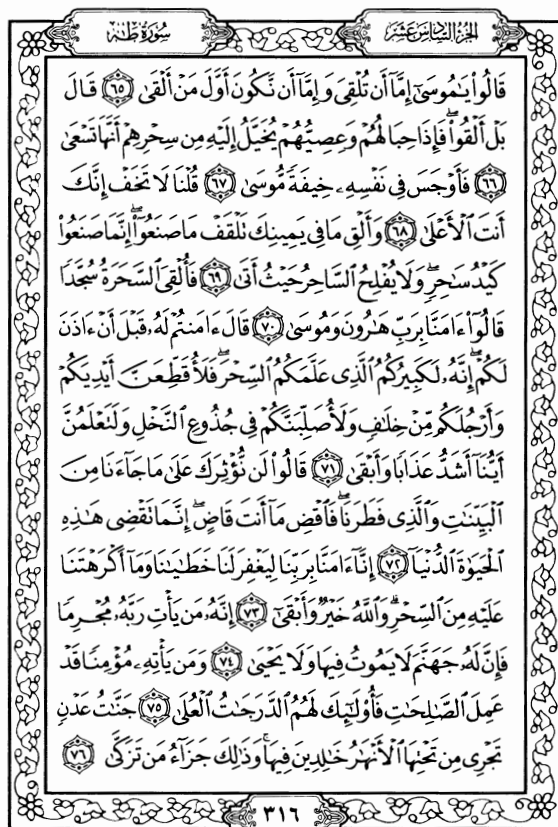 سُورَةُ طٰهٰ
الجُزْءُ السَّادِسَ عَشَرَ
قَالُوا۟ يَٰمُوسَىٰٓ إِمَّآ أَن تُلْقِىَ وَإِمَّآ أَن نَّكُونَ أَوَّلَ مَنْ أَلْقَىٰ ٦٥ قَالَ
بَلْ أَلْقُوا۟ۖ فَإِذَا حِبَالُهُمْ وَعِصِيُّهُمْ يُخَيَّلُ إِلَيْهِ مِن سِحْرِهِمْ أَنَّهَا تَسْعَىٰ
٦٦ فَأَوْجَسَ فِى نَفْسِهِۦ خِيفَةً مُّوسَىٰ ٦٧ قُلْنَا لَا تَخَفْ إِنَّكَ
أَنتَ ٱلْأَعْلَىٰ ٦٨ وَأَلْقِ مَا فِى يَمِينِكَ تَلْقَفْ مَا صَنَعُوٓا۟ۖ إِنَّمَا صَنَعُوا۟
كَيْدُ سَٰحِرٍۖ وَلَا يُفْلِحُ ٱلسَّاحِرُ حَيْثُ أَتَىٰ ٦٩ فَأُلْقِىَ ٱلسَّحَرَةُ سُجَّدًا
قَالُوٓا۟ ءَامَنَّا بِرَبِّ هَٰرُونَ وَمُوسَىٰ ٧٠ قَالَ ءَامَنتُمْ لَهُۥ قَبْلَ أَنْ ءَاذَنَ
لَكُمْۖ إِنَّهُۥ لَكَبِيرُكُمُ ٱلَّذِى عَلَّمَكُمُ ٱلسِّحْرَۖ فَلَأُقَطِّعَنَّ أَيْدِيَكُمْ
وَأَرْجُلَكُم مِّنْ خِلَٰفٍ وَلَأُصَلِّبَنَّكُمْ فِى جُذُوعِ ٱلنَّخْلِ وَلَتَعْلَمُنَّ
أَيُّنَآ أَشَدُّ عَذَابًا وَأَبْقَىٰ ٧١ قَالُوا۟ لَن نُّؤْثِرَكَ عَلَىٰ مَا جَآءَنَا مِنَ
ٱلْبَيِّنَٰتِ وَٱلَّذِى فَطَرَنَاۖ فَٱقْضِ مَآ أَنتَ قَاضٍۖ إِنَّمَا تَقْضِى هَٰذِهِ
ٱلْحَيَوٰةَ ٱلدُّنْيَآ ٧٢ إِنَّآ ءَامَنَّا بِرَبِّنَا لِيَغْفِرَ لَنَا خَطَٰيَٰنَا وَمَآ أَكْرَهْتَنَا
عَلَيْهِ مِنَ ٱلسِّحْرِۗ وَٱللَّهُ خَيْرٌ وَأَبْقَىٰٓ ٧٣ إِنَّهُۥ مَن يَأْتِ رَبَّهُۥ مُجْرِمًا
فَإِنَّ لَهُۥ جَهَنَّمَ لَا يَمُوتُ فِيهَا وَلَا يَحْيَىٰ ٧٤ وَمَن يَأْتِهِۦ مُؤْمِنًا قَدْ
عَمِلَ ٱلصَّٰلِحَٰتِ فَأُو۟لَٰٓئِكَ لَهُمُ ٱلدَّرَجَٰتُ ٱلْعُلَىٰ ٧٥ جَنَّٰتُ عَدْنٍ
تَجْرِى مِن تَحْتِهَا ٱلْأَنْهَٰرُ خَٰلِدِينَ فِيهَاۚ وَذَٰلِكَ جَزَآءُ مَن تَزَكَّىٰ ٧٦
٣١٦